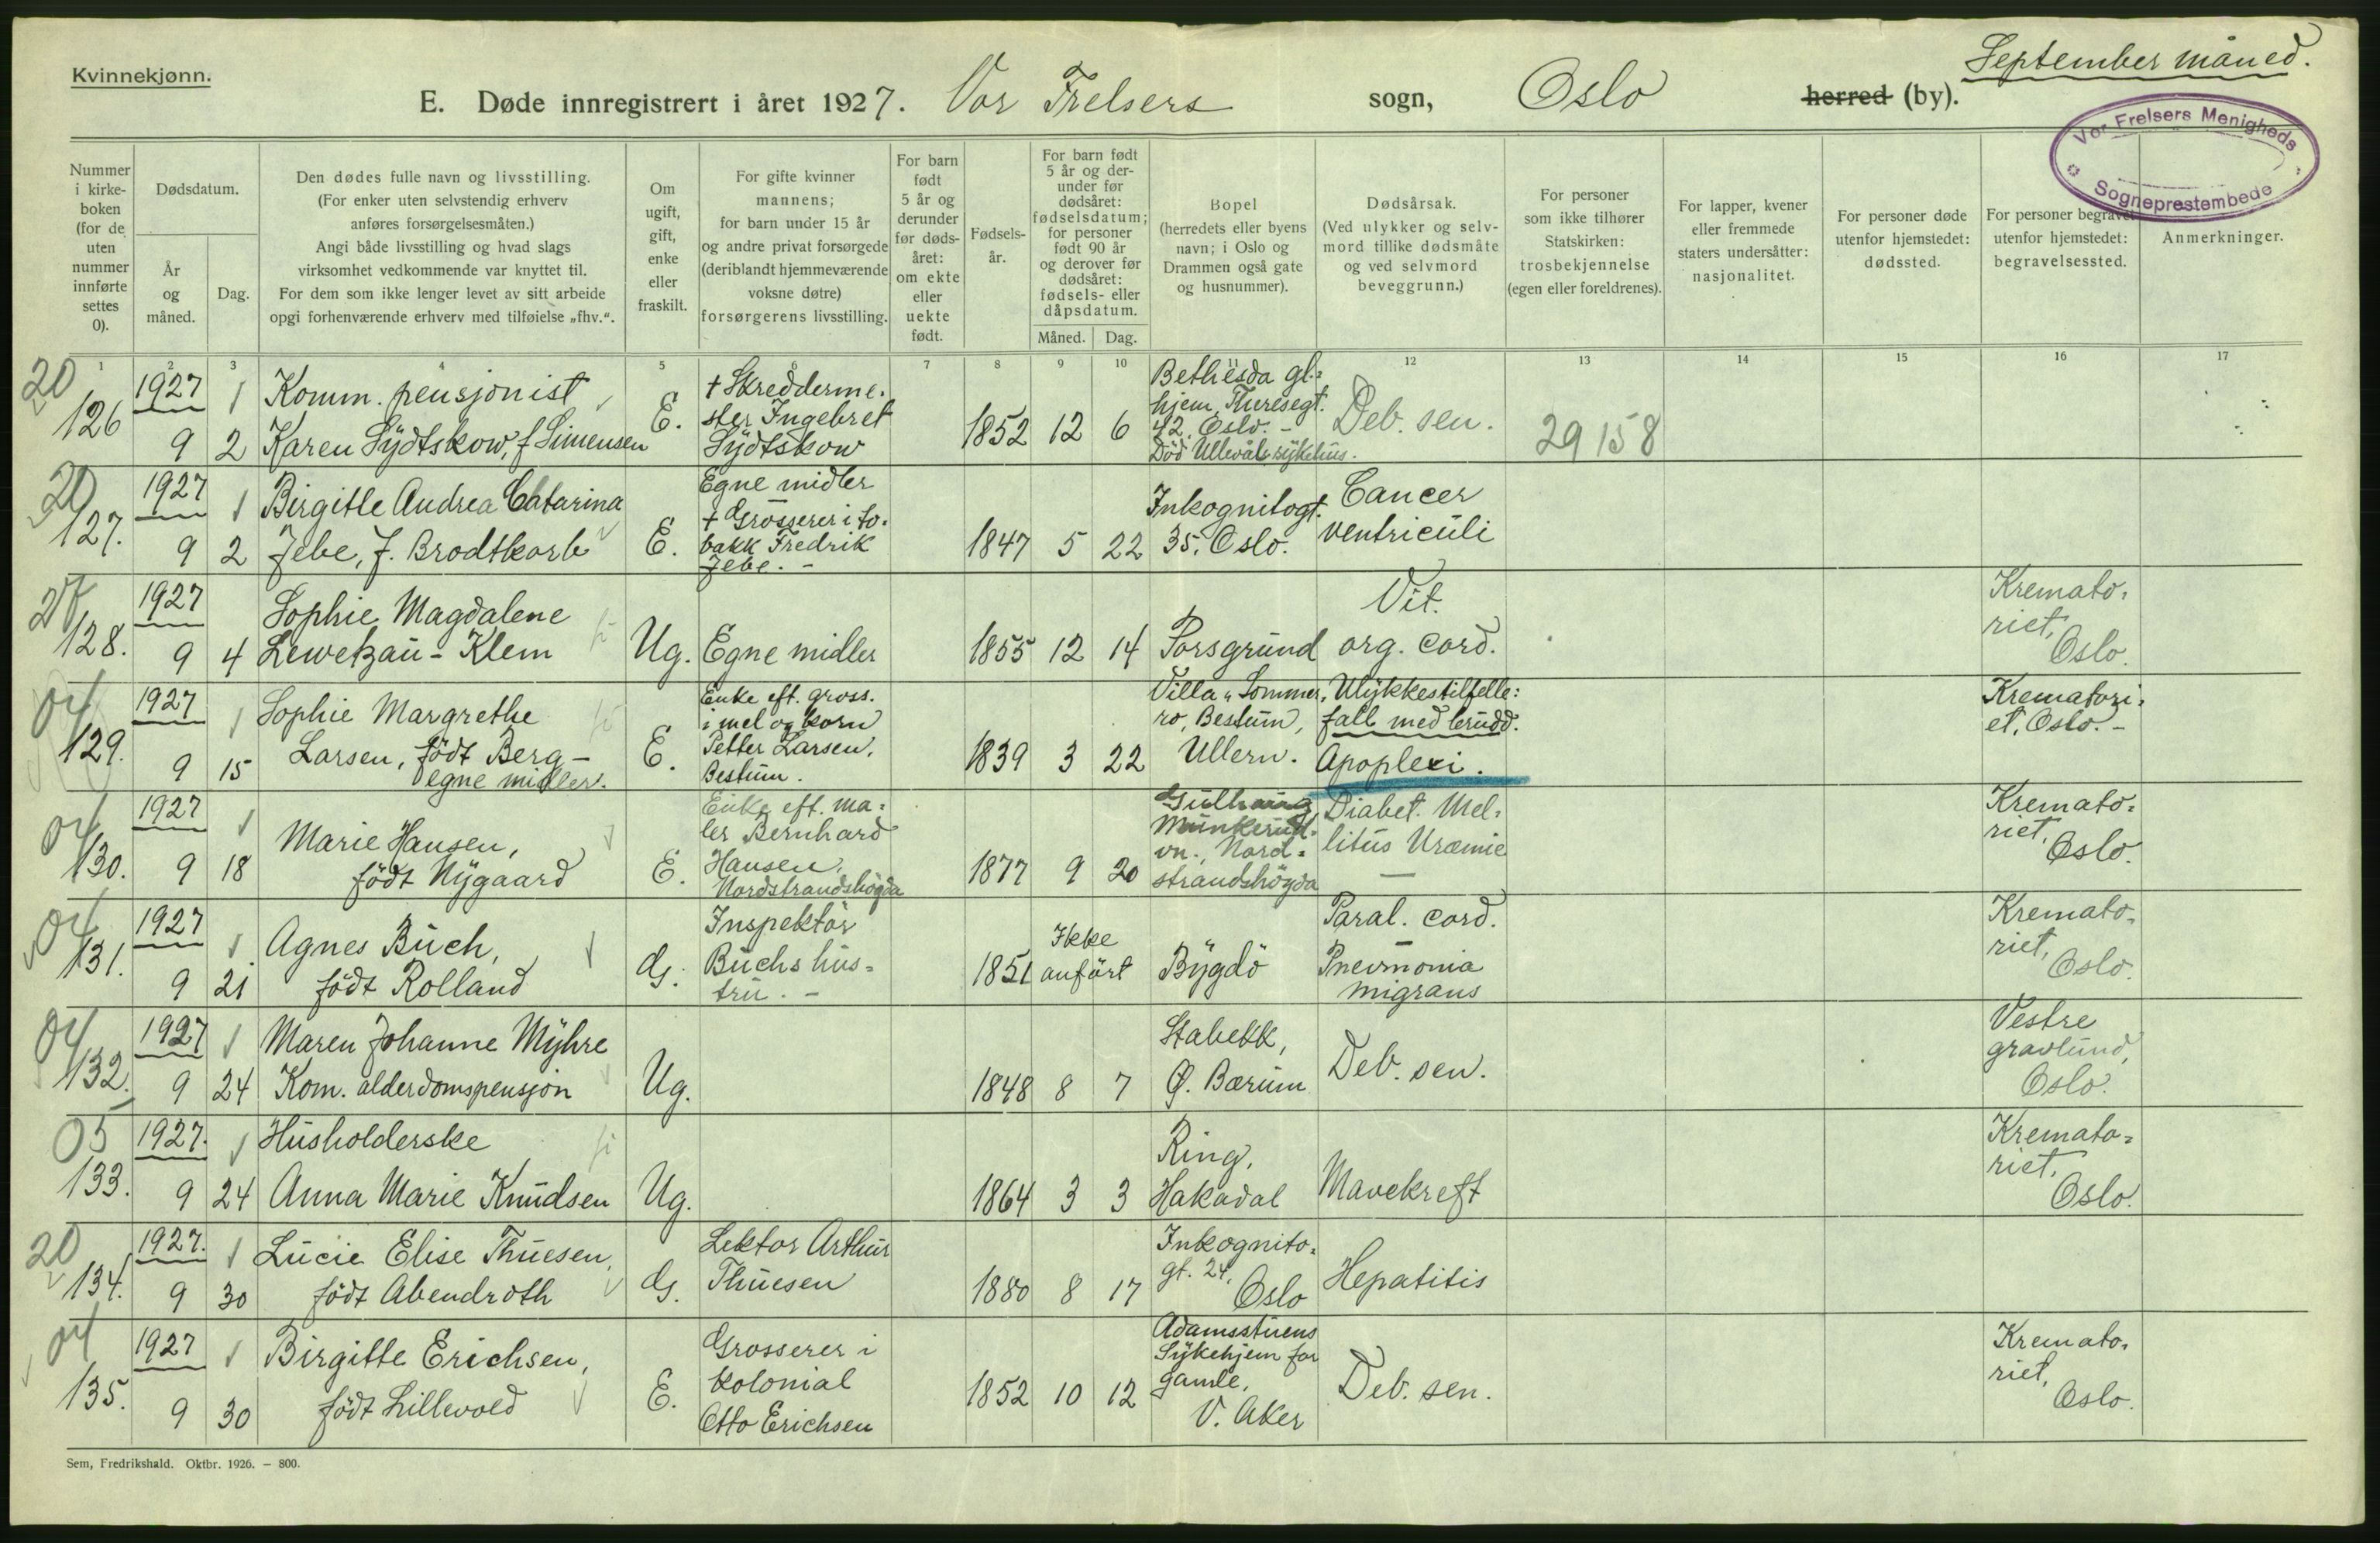 Kvinnekjønn.
September måned.
E. Døde innregistrert i året 1927. Vor Frelsers sogn, Oslo herred (by).
Vor Frelsers Menigheds
Sogneprestembede
Nummer i kirke-boken (for de uten nummer innførte settes 0).
Dødsdatum.
År og måned.
Dag.
Den dødes fulle navn og livsstilling.
(For enker uten selvstendig erhverv
anføres forsørgelsesmåten.)
Angi både livsstilling og hvad slags
virksomhet vedkommende var knyttet til.
For dem som ikke lenger levet av sitt arbeide
opgi forhenværende erhverv med tilføielse „fhv.“.
Om ugift, gift, enke eller fraskilt.
For gifte kvinner
mannens;
for barn under 15 år
og andre privat forsørgede
(deriblandt hjemmeværende
voksne døtre)
forsørgerens livsstilling.
For barn født 5 år og derunder før døds-året: om ekte eller uekte født.
Fødsels-år.
For barn født 5 år og der-under før dødsåret: fødselsdatum; for personer født 90 år og derover før dødsåret: fødsels- eller dåpsdatum.
Måned.
Dag.
Bopel
(herredets eller byens
navn; i Oslo og
Drammen også gate
og husnummer).
Dødsårsak.
(Ved ulykker og selv-
mord tillike dødsmåte
og ved selvmord
beveggrunn.)
For personer
som ikke tilhører
Statskirken:
trosbekjennelse
(egen eller foreldrenes).
For lapper, kvener
eller fremmede
staters undersåtter:
nasjonalitet.
For personer døde
utenfor hjemstedet:
dødssted.
For personer begravet
utenfor hjemstedet:
begravelsessted.
Anmerkninger.
1 2 3 4 5 6 7 8 9 10 11 12 13 14 15 16 17
20
126
1927
9 2
Komm. pensjonist
Karen Sydtskow, f. Simensen
E.
+ Skredderme-
ster Ingebret
Sydtskow
1852 12 6
Bethesda gl.=
hjem, Theresegt.
42. Oslo. -
Død Ullevål sykehus.
Deb. sen.
29158
20
127.
1927
9 2
Birgitte Andrea Chatarina
Jebe, f. Brodtkorb
E.
Egne midler
+ Grosserer i to-
bakk Fredrik
Jebe. -
1847 5 22
Inkognitogt.
35. Oslo.
Cancer
ventriculi
27
128.
1927
9 4
Sophie Magdalene
Lewetzau - Klem
Ug.
Egne midler
1855 12 14
Porsgrund
Vit.
org. cord.
Kremato-
riet,
Oslo.
04
129.
1927
9 15
Sophie Margrethe
Larsen, født Berg -
egne midler.
E.
Enke eft. gross.
i mel og korn
Petter Larsen,
Bestum.
1839 3 22
Villa „Sommer-
ro, Bestum,
Ullern.
Ulykkestilfelle:
fall med brudd.
Apoplexi.
Krematori-
et, Oslo. -
04
130.
1927
9 18
Marie Hansen,
født Nygaard
E.
Enke eft. ma-
ler Bernhard
Hansen,
Nordstrandshøgda
1877 9 20
Munkerud-
vn., Nord-
strandshøgda
Diabet. Mel-
litus Uræmie
Kremato-
riet,
Oslo.
04
131.
1927
9 21
Agnes Buch,
født Rolland
G.
Inspektør
Buchs hus-
tru. -
1851 Ikke
anført
Bygdø
Paral. cord.
Pneumonia
migrans
Kremato-
riet,
Oslo.
04
132.
1927
9 24
Maren Johanne Myhre
Kom. alderdomspensjon
Ug.
1848 8 7
Stabekk,
Ø. Bærum
Deb. sen.
Vestre
gravlund,
Oslo.
05
133.
1927.
9 24
Husholderske
Anna Marie Knudsen
Ug.
1864 3 3
Ring,
Hakadal
Mavekreft
Kremato-
riet,
Oslo.
20
134.
1927.
9 30
Lucie Elise Thuesen,
født Abendroth
G.
Lektor Arthur
Thuesen
1880 8 17
Inkognito-
gt. 24,
Oslo
Hepatitis
04
135.
1927
9 30
Birgitte Erichsen,
født Lillevold
E.
Grosserer i
kolonial
Otto Erichsen
1852 10 12
Adamsstuens
Sykehjem for
gamle,
V. Aker
Deb. sen.
Kremato-
riet,
Oslo.
Sem, Fredrikshald. Oktbr. 1926. – 800.